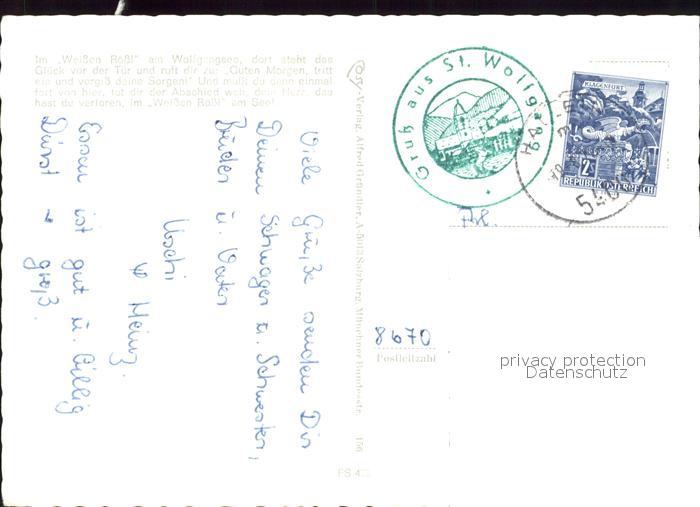 Im „Weißen Rößl" am Wolfgangsee, dort steht das
Glück vor der Tür und ruft dir zu: „Guten Morgen, tritt
ein und vergiß deine Sorgen! Und mußt du dann einmal
fort von hier, tut dir der Abschied weh, dein Herz, das
hast du verloren, im „Weißen Rößl" am See!
Viele Grüße senden Dir
Deinen Schwager u. Schwester,
Bruder u. Vater
Uschi
Heinz.
Essen ist gut u. billig
Durst
groß.
Verlag Alfred Gründler, A-5013 Salzburg, Münchner Bundesstr. 156
FS
Gruß aus St. Wolfgang
KLAGENFURT
2S
REPUBLIK ÖSTERREICH
8670
Postleitzahl
privacy protection
Datenschutz